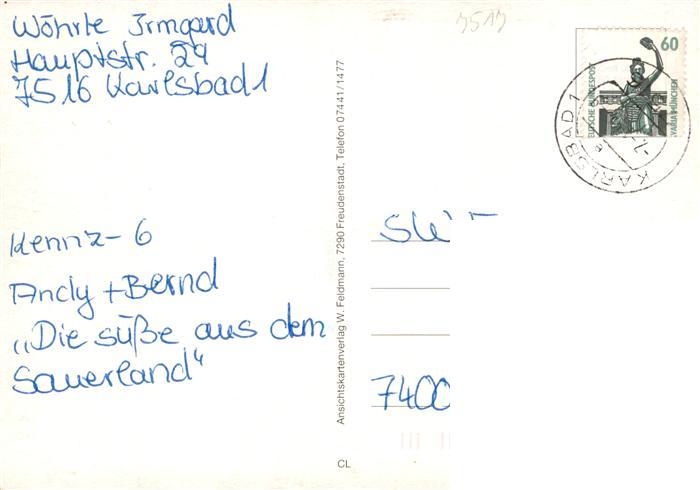 Wöhrle Irmgard
Hauptstr. 29
7516 Karlsbad 1
7513
60
DEUTSCHE BUNDESPOST
BAVARIA MÜNCHEN
KARLSBAD 1
Kennz-6
Andy + Bernd
„Die süße aus dem
Sauerland"
Ansichtskartenverlag W. Feldmann, 7290 Freudenstadt, Telefon 07441/1477
CL
7400